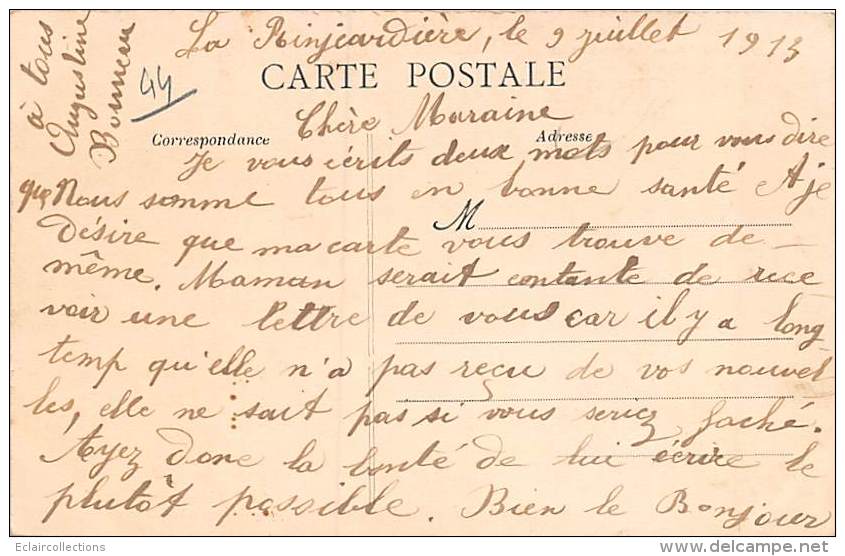 La Rinjeardière, le 9 juillet 1913
CARTE POSTALE
44
Correspondance
Adresse
M
Chère Maraine
Je vous écrits deux mots pour vous dire
que Nous somme tous en bonne santé Aje
Désire que ma carte vous trouve de
même. Maman serait contante de rece
voir une lettre de vous car il y a long-
temp qu'elle n'a pas reçu de vos nouvel
les, elle ne sait pas si vous seriez faché.
Ayez donc la bonté de lui écrire le
plutôt possible. Bien le Bonjour
à tous
Augustine
Bonneau
Eclaircollections
delcampe.net